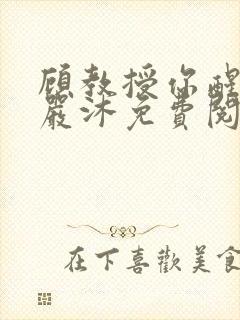 顧教授你醒
嚴沐免費閱
在下喜歡美食